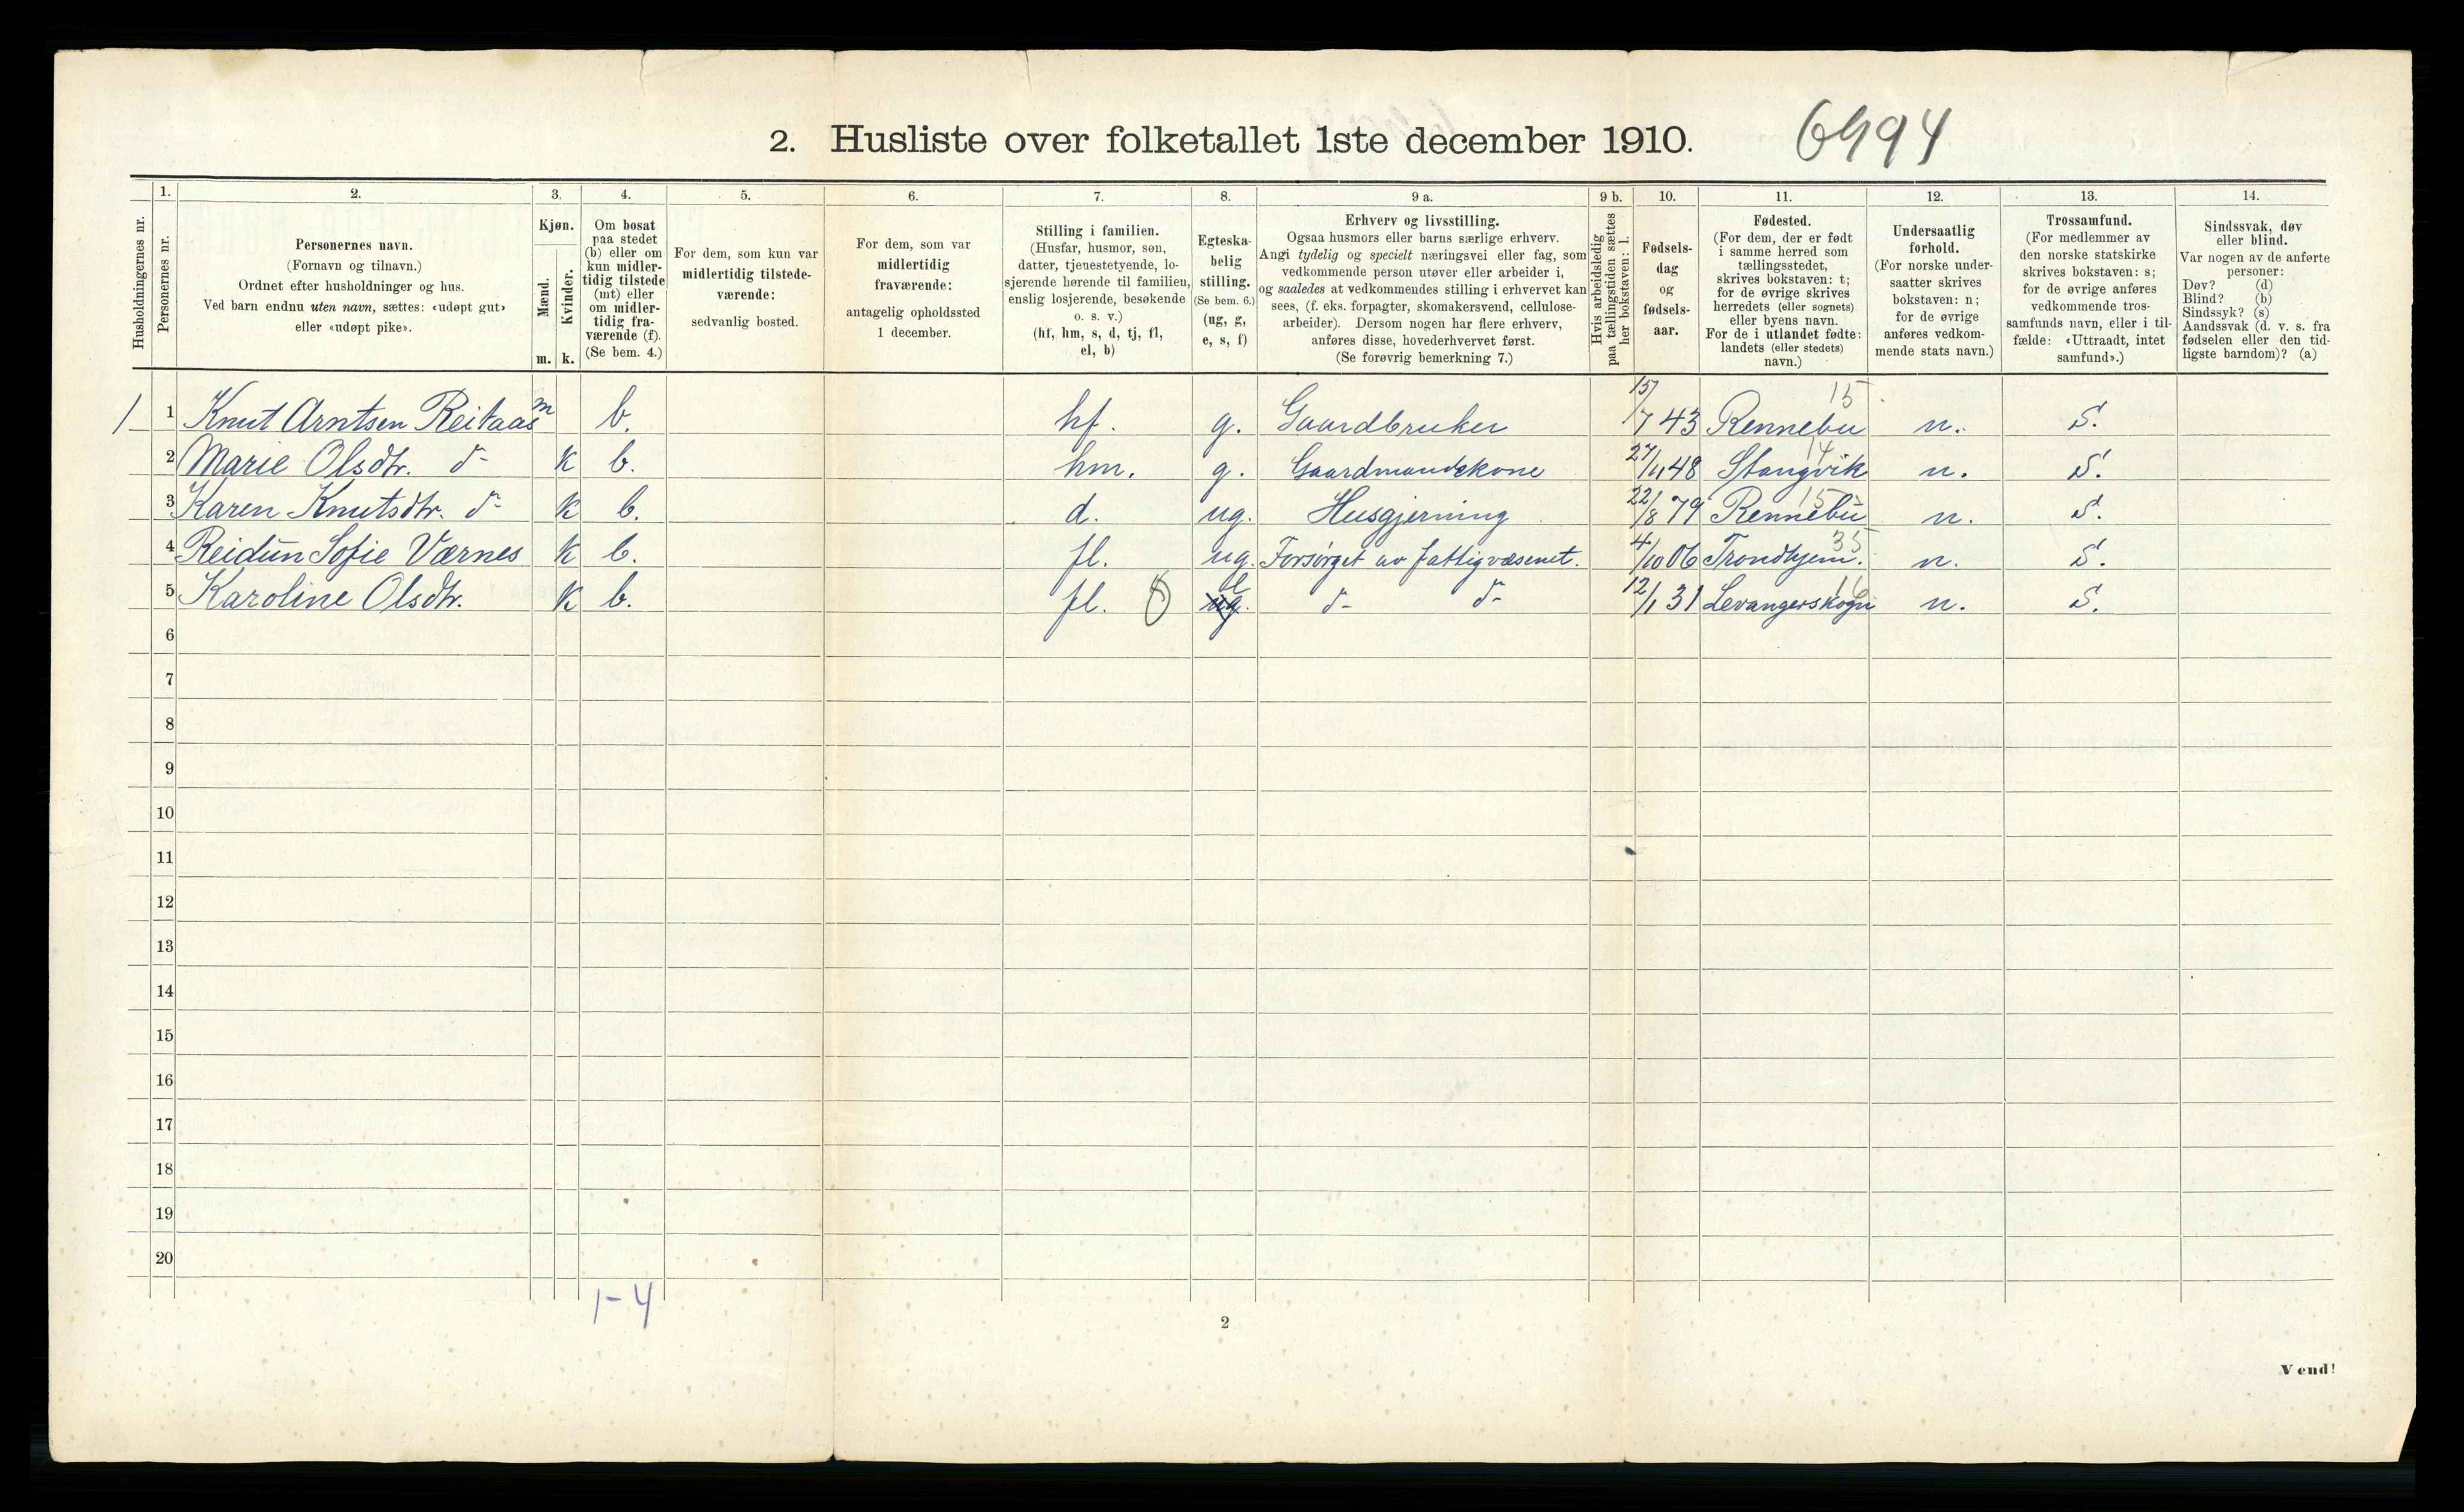 2. Husliste over folketallet 1ste december 1910. 6994
Husholdningernes nr.
1. Personernes nr.
2. Personernes navn.
(Fornavn og tilnavn.)
Ordnet efter husholdninger og hus.
Ved barn endnu uten navn, sættes: «udøpt gut»
eller «udøpt pike».
3. Kjøn.
Mænd. m.
Kvinder. k.
4. Om bosat
paa stedet
(b) eller om
kun midler-
tidig tilstede
(mt) eller
om midler-
tidig fra-
værende (f).
(Se bem. 4.)
5. For dem, som kun var
midlertidig tilstede-
værende:
sedvanlig bosted.
6. For dem, som var
midlertidig
fraværende:
antagelig opholdssted
1 december.
7. Stilling i familien.
(Husfar, husmor, søn,
datter, tjenestetyende, lo-
sjerende hørende til familien,
enslig losjerende, besøkende
o. s. v.)
(hf, hm, s, d, tj, fl,
el, b)
8. Egteska-
belig
stilling.
(Se bem. 6.)
(ug, g,
e, s, f)
9 a. Erhverv og livsstilling.
Ogsaa husmors eller barns særlige erhverv.
Angi tydelig og specielt næringsvei eller fag, som
vedkommende person utøver eller arbeider i,
og saaledes at vedkommendes stilling i erhvervet kan
sees, (f. eks. forpagter, skomakersvend, cellulose-
arbeider). Dersom nogen har flere erhverv,
anføres disse, hovederhvervet først.
(Se forøvrig bemerkning 7.)
9 b. Hvis arbeidsledig
paa tællingstiden sættes
her bokstaven: l.
10. Fødsels-
dag
og
fødsels-
aar.
11. Fødested.
(For dem, der er født
i samme herred som
tællingsstedet,
skrives bokstaven: t;
for de øvrige skrives
herredets (eller sognets)
eller byens navn.
For de i utlandet fødte:
landets (eller stedets)
navn.)
12. Undersaatlig
forhold.
(For norske under-
saatter skrives
bokstaven: n;
for de øvrige
anføres vedkom-
mende stats navn.)
13. Trossamfund.
(For medlemmer av
den norske statskirke
skrives bokstaven: s;
for de øvrige anføres
vedkommende tros-
samfunds navn, eller i til-
fælde: «Uttraadt, intet
samfund».)
14. Sindssvak, døv
eller blind.
Var nogen av de anførte
personer:
Døv? (d)
Blind? (b)
Sindssyk? (s)
Aandssvak (d. v. s. fra
fødselen eller den tid-
ligste barndom)? (a)
1 1 Knut Arntsen Reitaas m b. hf. g. Gaardbruker 15/7 43 Rennebu 15 n. S.
2 Marie Olsdtr. d- k b. hm. g. Gaardmandskone 27/11 48 Stangvik 14 n. S.
3 Karen Knutsdtr. d- k b. d. ug. Husgjerning 22/8 79 Rennebu 15 n. S.
4 Reidun Sofie Værnes k b. fl. ug. Forsørget av fattigvæsenet. 4/10 06 Trondhjem. 35 n. S.
5 Karoline Olsdtr. k b. fl. ug. e d- d- 12/1 31 Levangerskogn 16 n. S.
6
7
8
9
10
11
12
13
14
15
16
17
18
19
20
1-4
2
Vend!